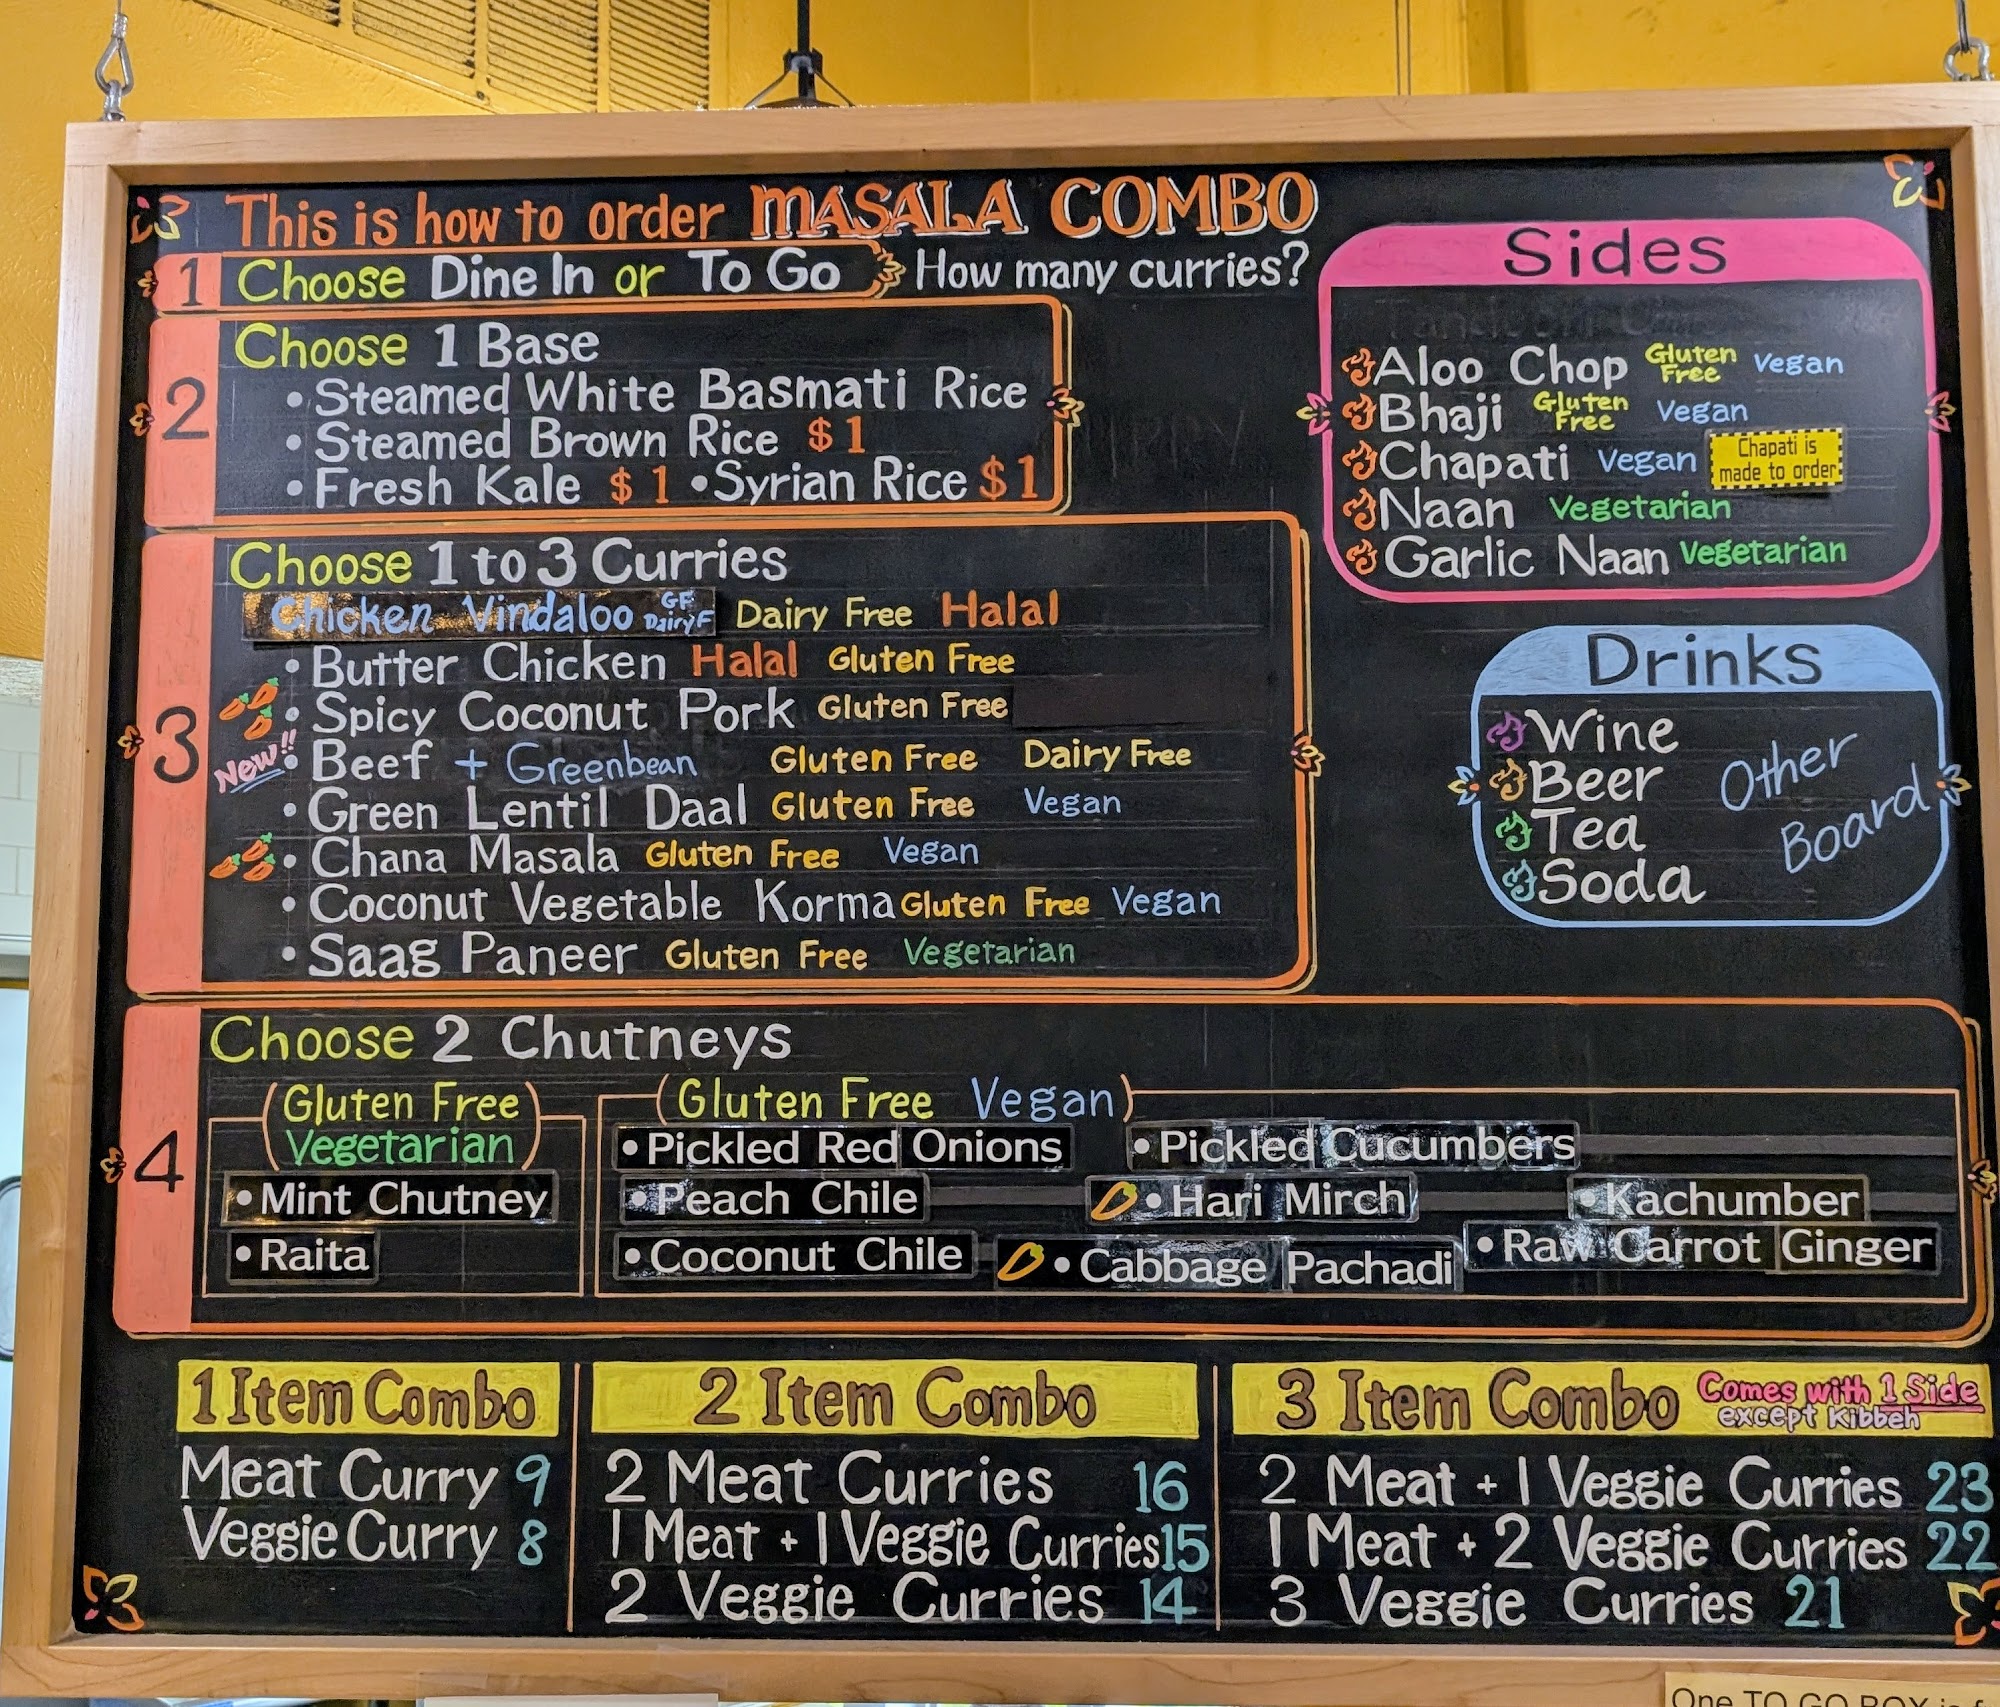 This is how to order MASALA COMBO
1 Choose Dine In or To Go How many curries?
2 Choose 1 Base
• Steamed White Basmati Rice
• Steamed Brown Rice $1
• Fresh Kale $1 • Syrian Rice $1
3 Choose 1 to 3 Curries
Chicken Vindaloo GF DairyF Dairy Free Halal
• Butter Chicken Halal Gluten Free
• Spicy Coconut Pork Gluten Free
New!! • Beef + Greenbean Gluten Free Dairy Free
• Green Lentil Daal Gluten Free Vegan
• Chana Masala Gluten Free Vegan
• Coconut Vegetable Korma Gluten Free Vegan
• Saag Paneer Gluten Free Vegetarian
Sides
Aloo Chop Gluten Free Vegan
Bhaji Gluten Free Vegan
Chapati Vegan Chapati is made to order
Naan Vegetarian
Garlic Naan Vegetarian
Drinks
Wine
Beer
Tea
Soda
Other
Board
4 Choose 2 Chutneys
(Gluten Free
Vegetarian)
• Mint Chutney
• Raita
(Gluten Free Vegan)
• Pickled Red Onions • Pickled Cucumbers
• Peach Chile • Hari Mirch • Kachumber
• Coconut Chile • Cabbage Pachadi • Raw Carrot Ginger
1 Item Combo
Meat Curry 9
Veggie Curry 8
2 Item Combo
2 Meat Curries 16
1 Meat + 1 Veggie Curries 15
2 Veggie Curries 14
3 Item Combo Comes with 1 Side
except Kibbeh
2 Meat + 1 Veggie Curries 23
1 Meat + 2 Veggie Curries 22
3 Veggie Curries 21
One TO GO BOX is